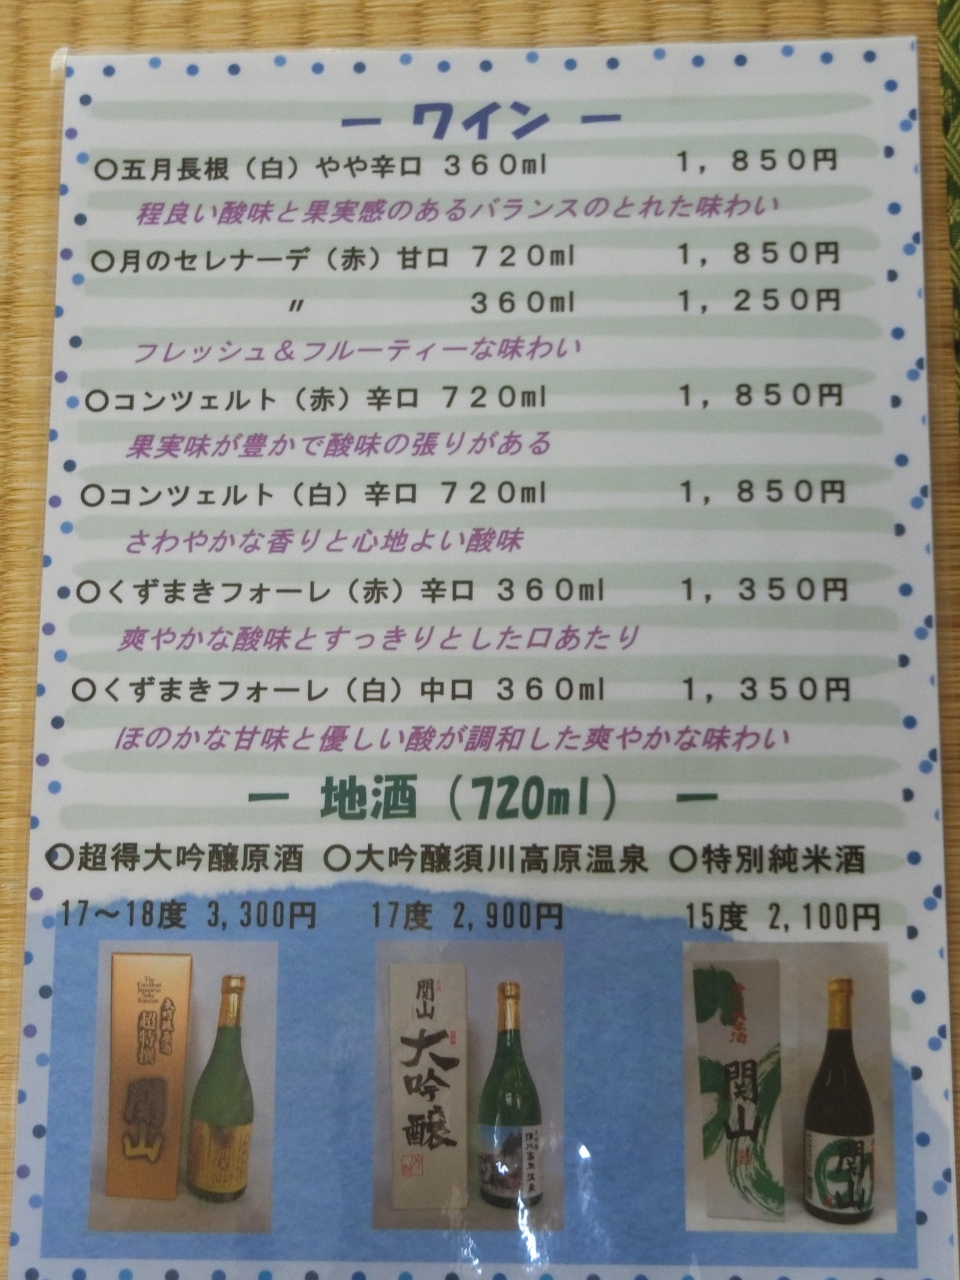 ー ワイン ー
〇五月長根（白）やや辛口 360ml 1，850円
程良い酸味と果実感のあるバランスのとれた味わい
〇月のセレナーデ（赤）甘口 720ml 1，850円
〃 360ml 1，250円
フレッシュ＆フルーティーな味わい
〇コンツェルト（赤）辛口 720ml 1，850円
果実味が豊かで酸味の張りがある
〇コンツェルト（白）辛口 720ml 1，850円
さわやかな香りと心地よい酸味
〇くずまきフォーレ（赤）辛口 360ml 1，350円
爽やかな酸味とすっきりとした口あたり
〇くずまきフォーレ（白）中口 360ml 1，350円
ほのかな甘味と優しい酸が調和した爽やかな味わい
ー 地酒（720ml） ー
〇超得大吟醸原酒 〇大吟醸須川高原温泉 〇特別純米酒
17～18度 3,300円 17度 2,900円 15度 2,100円
The Excellent Japanese Sake Kanzan
大吟醸原酒
超特撰
関山
関山
大吟醸
須川高原温泉
関山
関山